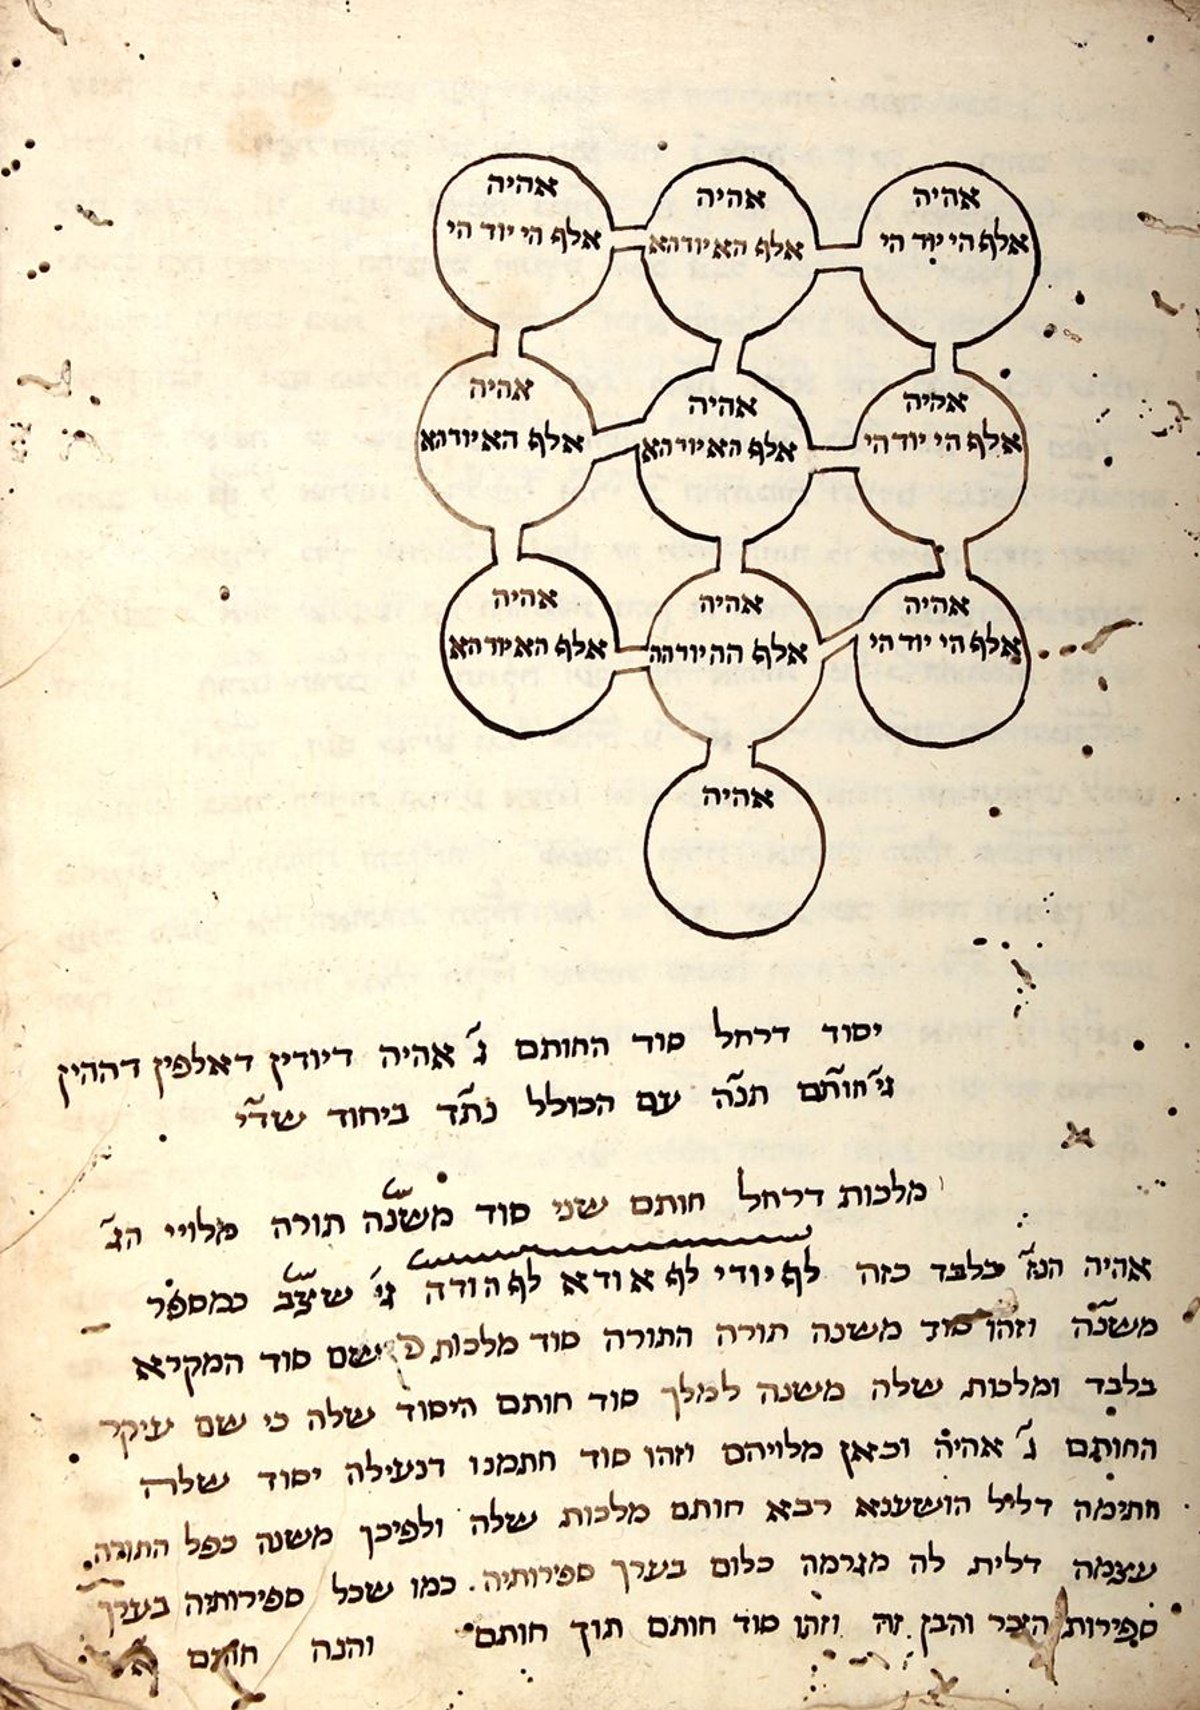 אהיה אהיה אהיה
אלף הי יוד הי אלף הא יוד הא אלף הי יוד הי
אהיה אהיה אהיה
אלף הי יוד הי אלף הא יוד הא אלף הא יוד הא
אהיה אהיה אהיה
אלף הי יוד הי אלף הה יוד הה אלף הא יוד הא
אהיה
יסוד דרחל סוד החותם ג׳ אהיה דיודין דאלפין דההין
גי׳ חותם תנ״ה עם הכולל נת״ד ביחוד שד״י
מלכות דרחל חותם שני סוד משנ״ה תורה מלויי הג׳
אהיה הנז׳ בלבד כזה לף יודי לף אודא לף הודה גי׳ שצ״ב כמספר
משנ״ה וזהו סוד משנה תורה התורה סוד מלכות ישם סוד המקרא
בלבד ומלכות שלה משנה למלך סוד חותם היסוד שלה כי שם עיקר
החותם ג׳ אהיה וכאן מלויהם וזהו סוד חתמנו דנעילה יסוד שלה
חתימה דליל הושענא רבא חותם מלכות שלה ולפיכך משנה כפל התורה
עצמה דלית לה מגרמה כלום בערך ספירותיה. כמו שכל ספירותיה בערך
ספירות הזכר והבן זה וזהו סוד חותם תוך חותם והנה חותם